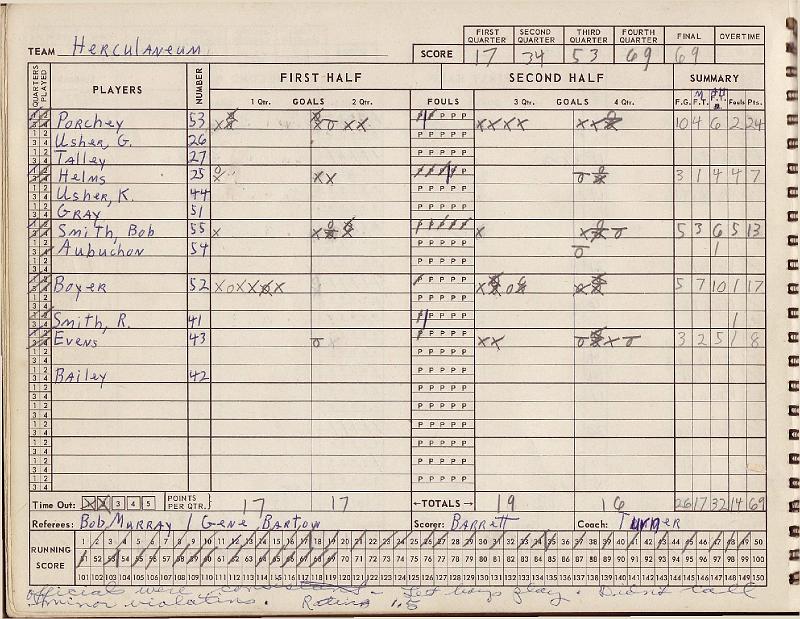 TEAM Herculaneum
FIRST QUARTER SECOND QUARTER THIRD QUARTER FOURTH QUARTER FINAL OVERTIME
SCORE 17 34 53 69 69
QUARTERS PLAYED PLAYERS NUMBER FIRST HALF SECOND HALF SUMMARY
1 Qtr. GOALS 2 Qtr. FOULS 3 Qtr. GOALS 4 Qtr. F.G. F.T. Fouls Pts.
Porchey 53 10 4 6 2 24
Usher, G. 26
Talley 27
Helms 25 3 1 4 4 7
Usher, K. 44
Gray 51
Smith, Bob 55 5 3 6 5 13
Aubuchon 54 1
Boyer 52 5 7 10 1 17
Smith, R. 41 1
Evens 43 3 2 5 1 8
Bailey 42
Time Out: 1 2 3 4 5 POINTS PER QTR. 17 17 ←TOTALS→ 19 16 26 17 32 14 69
Referees: Bob Murray / Gene Bartow Scorer: Barrett Coach: Turner
RUNNING SCORE
1 2 3 4 5 6 7 8 9 10 11 12 13 14 15 16 17 18 19 20 21 22 23 24 25 26 27 28 29 30 31 32 33 34 35 36 37 38 39 40 41 42 43 44 45 46 47 48 49 50
51 52 53 54 55 56 57 58 59 60 61 62 63 64 65 66 67 68 69 70 71 72 73 74 75 76 77 78 79 80 81 82 83 84 85 86 87 88 89 90 91 92 93 94 95 96 97 98 99 100
101 102 103 104 105 106 107 108 109 110 111 112 113 114 115 116 117 118 119 120 121 122 123 124 125 126 127 128 129 130 131 132 133 134 135 136 137 138 139 140 141 142 143 144 145 146 147 148 149 150
Officials were consistant - Let boys play. Didn't call
minor violations. Rating 1.5